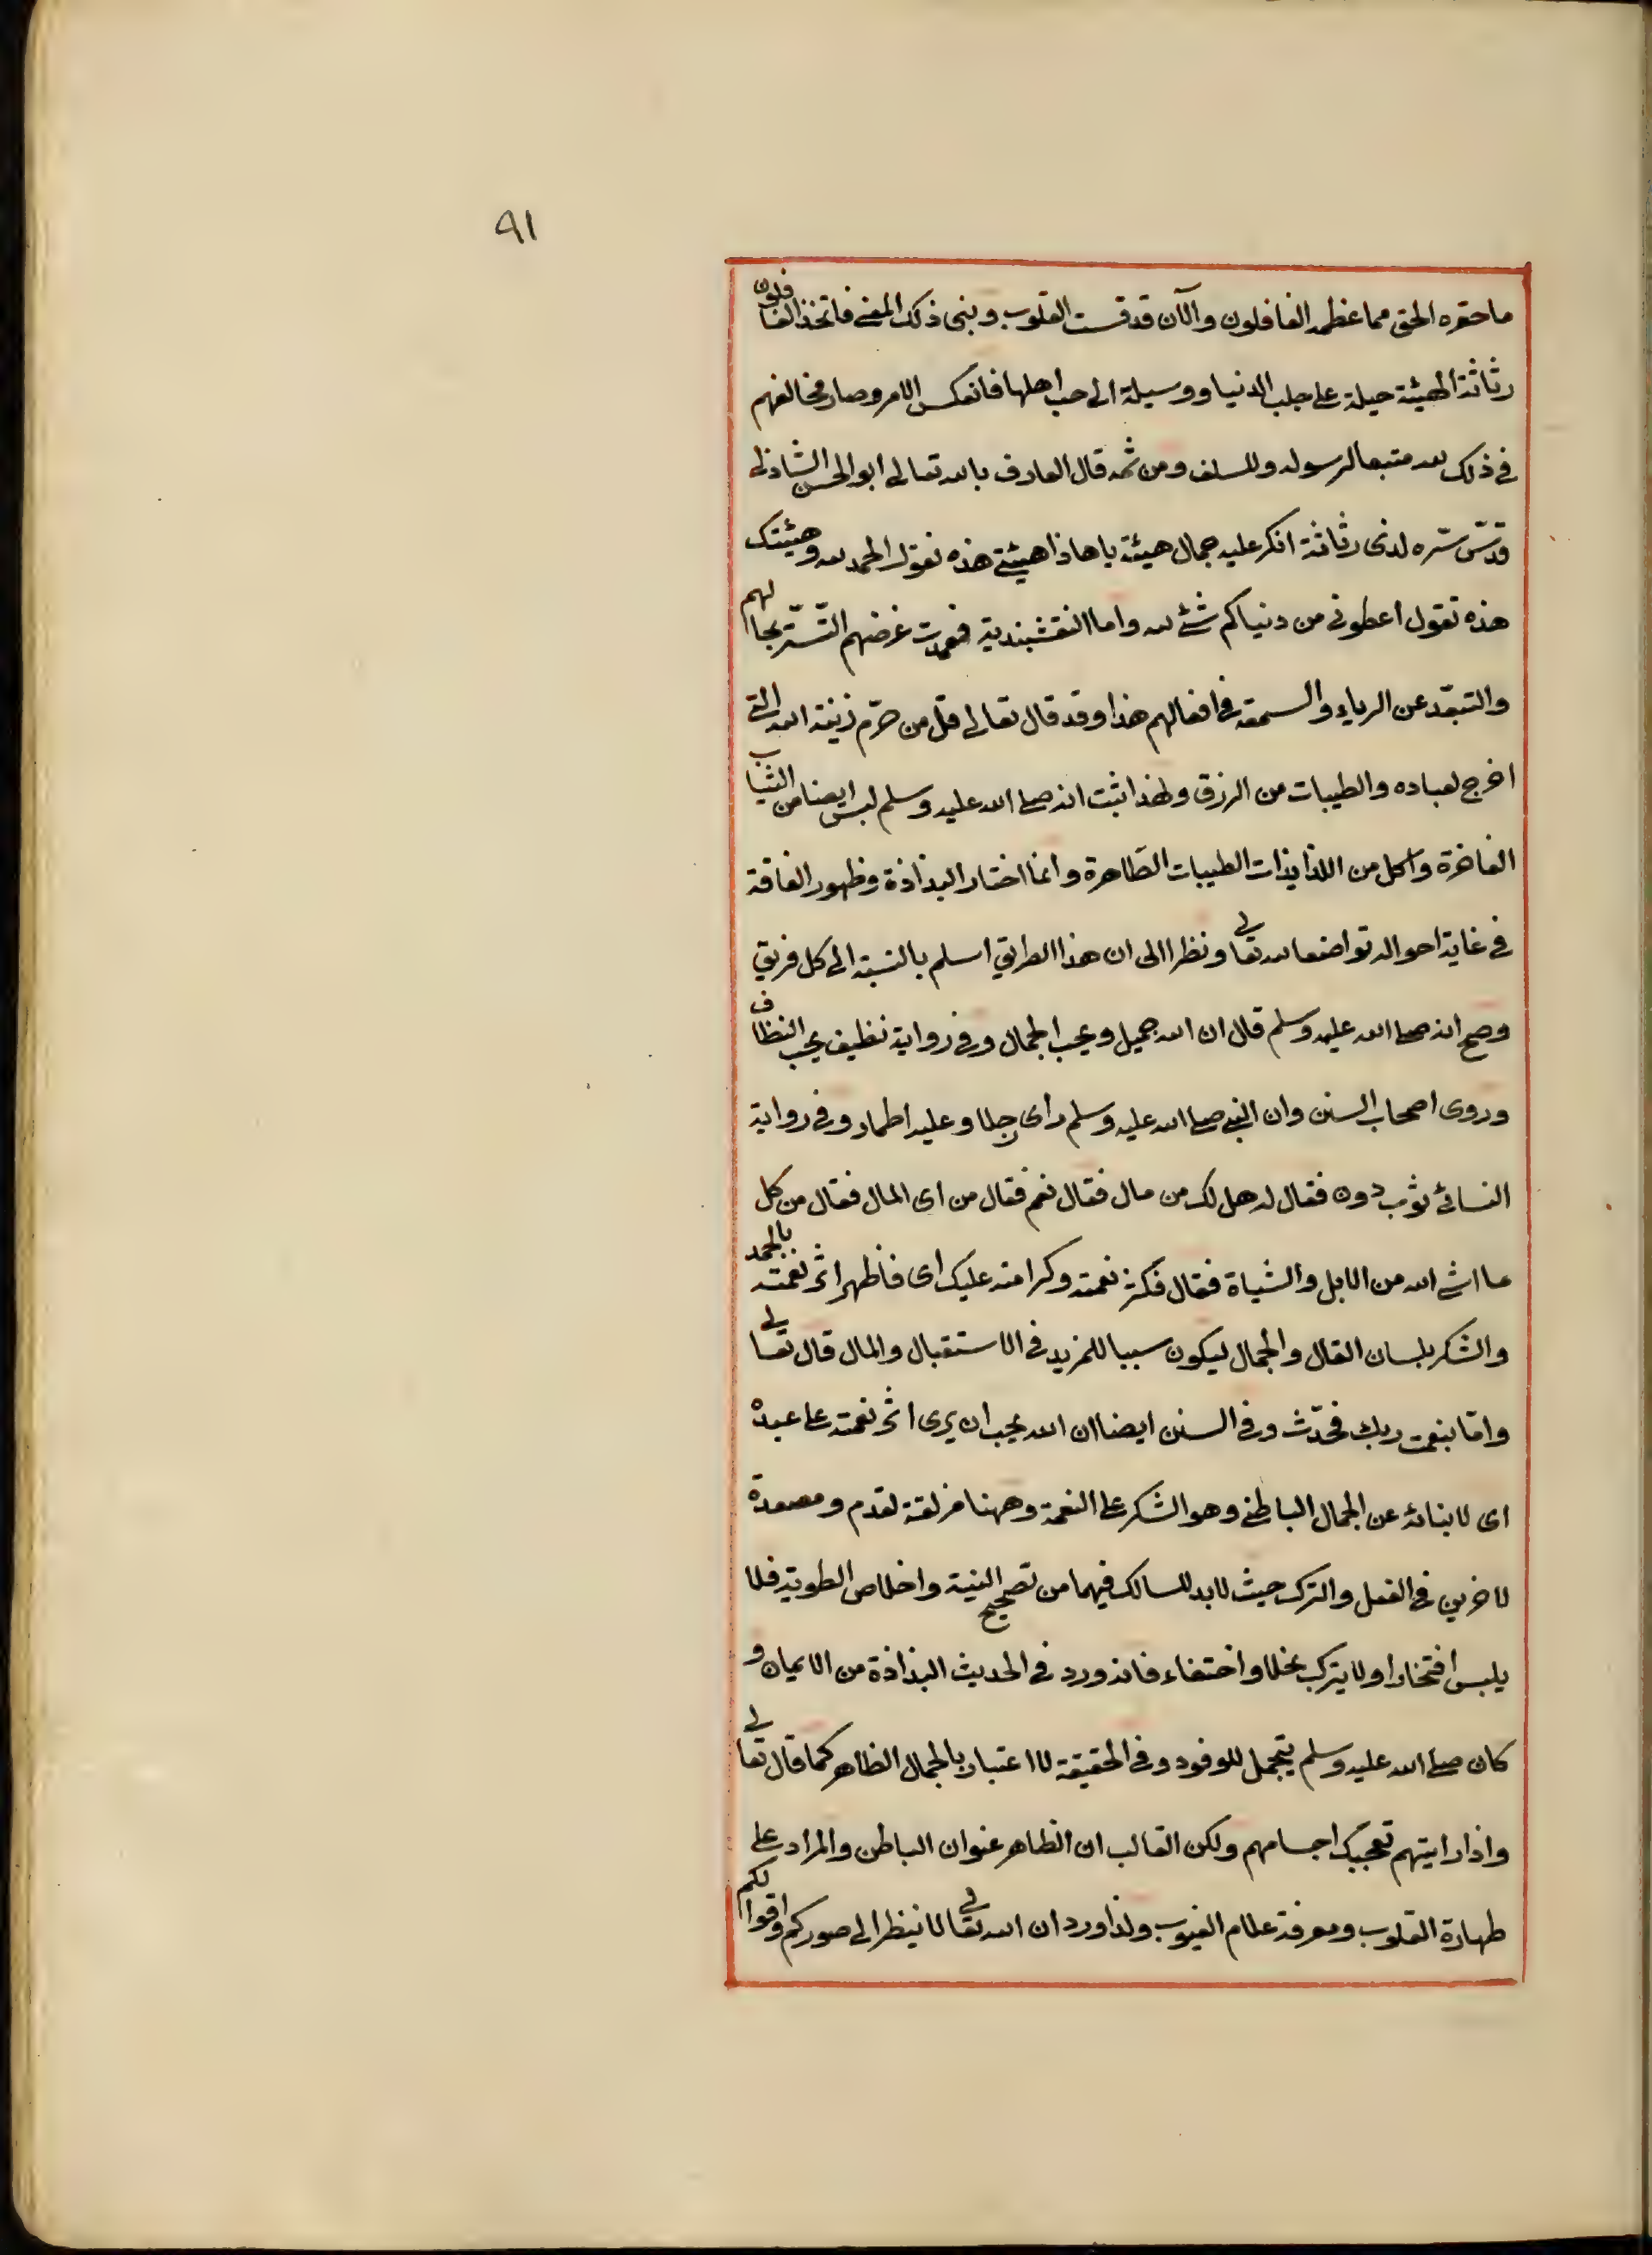 ٩١
ما حقره الحق مما عظمه الغافلون والآن قد قست القلوب ونسى ذلك المعنى فاتخذ الغافلون
رثاثة الهيئة حيلة على جلب الدنيا ووسيلة الى حب اهلها فانعكس الامر وصار مخالفهم
فى ذلك لله متبعا لرسوله وللسلف ومن ثمه قال العارف بالله تعالى ابو الحسن الشاذلى
قدّس سّره لذى رثاثة انكر عليه جمال هيئة يا هاذا هيئتى هذه تقول الحمد لله وهيئتك
هذه تقول اعطونى من دنياكم شئ لله واما النقشبندية فعمدت غرضهم التستّر بحالهم
والتبعّد عن الرياء والسمعة فى افعالهم هذا وقد قال تعالى قل من حرّم زينة الله التى
اخرج لعباده والطيبات من الرزق ولهذا ثبت انه صلى الله عليه وسلم لبس ايضا من الثياب
الفاخرة واكل من اللذايذات الطيبات الطاهرة وانما اختار البذاذة وظهور الفاقة
فى غاية احواله تواضعا لله تعالى ونظرا الى ان هذا الطريق اسلم بالنسبة الى كل فريق
وصح انه صلى الله عليه وسلم قال ان الله جميل ويحب الجمال وفى رواية نظيف يحب النظاف
وروى اصحاب السنن وان النبى صلى الله عليه وسلم راى رجلا وعليه اطمار وفى رواية
النسائى ثوب دون فقال له هل لك من مال فقال نعم فقال من اى المال فقال من كل
ما اتى الله من الابل والشياة فقال فكثر نعمته وكرامته عليك اى فاظهر اثر نعمته بالحمد
والشكر بلسان القال والجمال ليكون سببا للمزيد فى الاستقبال والمال قال تعالى
وامّا بنعمت ربك فحدّث وفى السنن ايضا ان الله يحب ان يرى اثر نعمته على عبده
اى لانبائه عن الجمال الباطنى وهو الشكر على النعمة وههنا مزلقة لقدم ومصعدة
لاخرين فى الفعل والترك حيث لا بد للسالك فيهما من تصحيح النية واخلاص الطوية فلا
يلبس افتخارا ولا يترك بخلا واختفاء فانه ورد فى الحديث البذاذة من الايمان و
كان صلى الله عليه وسلم يتجمل للوفود وفى الحقيقة لا اعتبار بالجمال الظاهر كما قال تعالى
واذا رايتهم تعجبك اجسامهم ولكن الغالب ان الظاهر عنوان الباطن والمراد على
طهارة القلوب ومعرفة علام الغيوب ولذا ورد ان الله تعالى لا ينظر الى صوركم واقوالكم